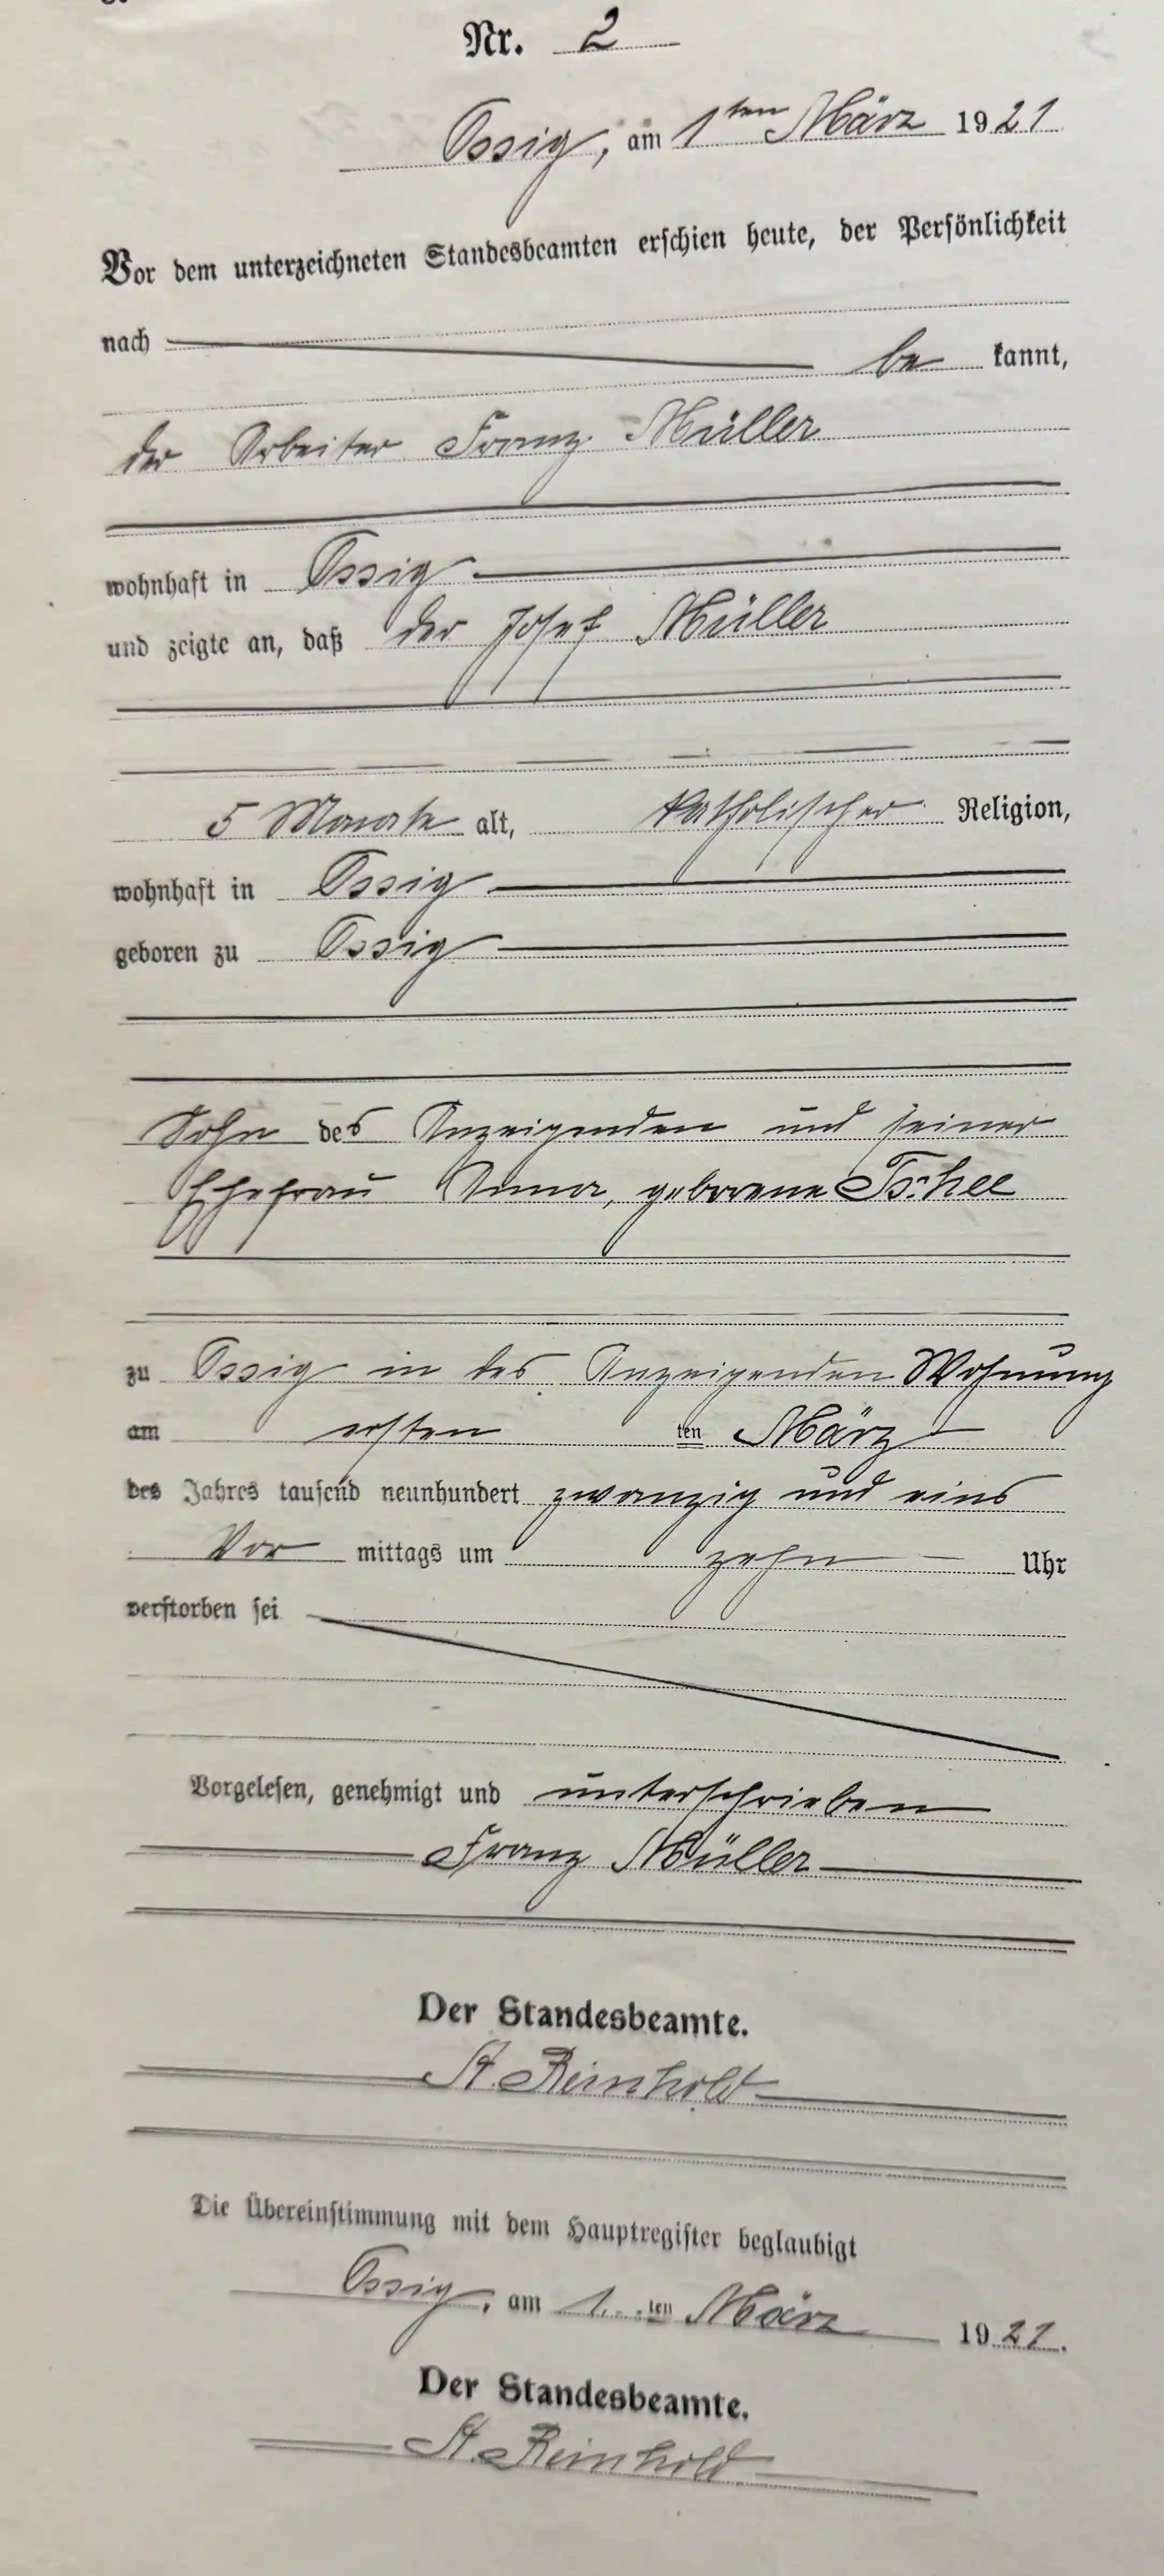 Nr. 2
Ossig, am 1ten März 1921
Vor dem unterzeichneten Standesbeamten erschien heute, der Persönlichkeit
nach be kannt,
der Arbeiter Franz Müller
wohnhaft in Ossig
und zeigte an, daß der Josef Müller
5 Monate alt, katholischer Religion,
wohnhaft in Ossig
geboren zu Ossig
Sohn des Anzeigenden und seiner
Ehefrau Anna, geborene
zu Ossig in des Anzeigenden Wohnung
am ersten ten März
des Jahres tausend neunhundert zwanzig und eins
Vor mittags um zehn Uhr
verstorben sei
Vorgelesen, genehmigt und unterschrieben
Franz Müller
Der Standesbeamte.
Reinhold
Die Übereinstimmung mit dem Hauptregister beglaubigt
Ossig, am 1. ten März 1921.
Der Standesbeamte.
Reinhold